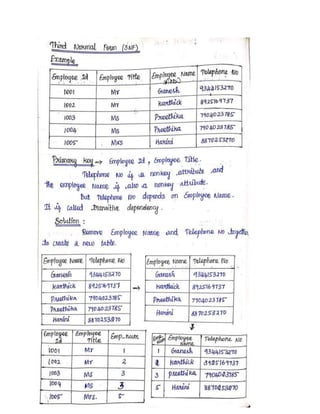 Third Normal Form (3NF)
Example
Employee Id Employee Title Employee Name Telephone No
1001 Mr Ganesh 9344153270
1002 Mr Karthick 8925169737
1003 Ms Preethika 7904023785
1004 Ms Preethika 7904023785
1005 Mrs Harini 8870253270
Primary Key → Employee Id, Employee Title.
Telephone No is a nonkey attribute and
the employee Name is also a nonkey attribute.
But Telephone No depends on Employee Name.
It is called transitive dependency.
Solution:
Remove Employee Name and Telephone No together
to create a new table.
Employee Name Telephone No
Ganesh 9344153270
Karthick 8925169737
Preethika 7904023785
Preethika 7904023785
Harini 8870253270
→
Employee Name Telephone No
Ganesh 9344153270
Karthick 8925169737
Preethika 7904023785
Harini 8870253270
Employee Id Employee Title Emp_Num
1001 Mr 1
1002 Mr 2
1003 Ms 3
1004 Ms 3
1005 Mrs. 5
Employee Name Telephone No
1 Ganesh 9344153270
2 Karthick 8925169737
3 Preethika 7904023785
5 Harini 8870253270